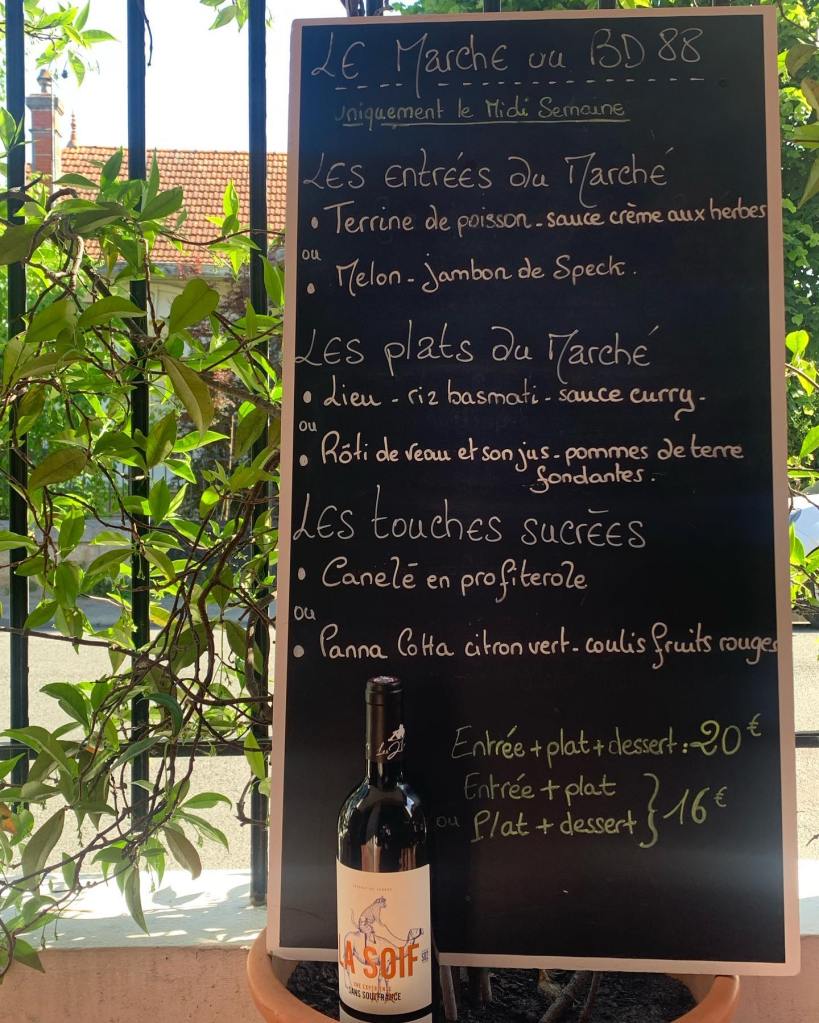 LE Marche ou BD 88
Uniquement le Midi Semaine
LES entrées du Marché
• Terrine de poisson - sauce crème aux herbes
ou
• Melon - jambon de Speck.
LES plats du Marché
• Lieu - riz basmati - sauce curry -
ou
• Rôti de veau et son jus - pommes de terre
fondantes.
LES touches sucrées
• Canelé en profiterole
ou
• Panna Cotta citron vert - coulis fruits rouges
Entrée + plat + dessert : 20 €
Entrée + plat
ou Plat + dessert } 16 €
LA SOIF
UNE EXPÉRIENCE
SANS SOUFFRANCE